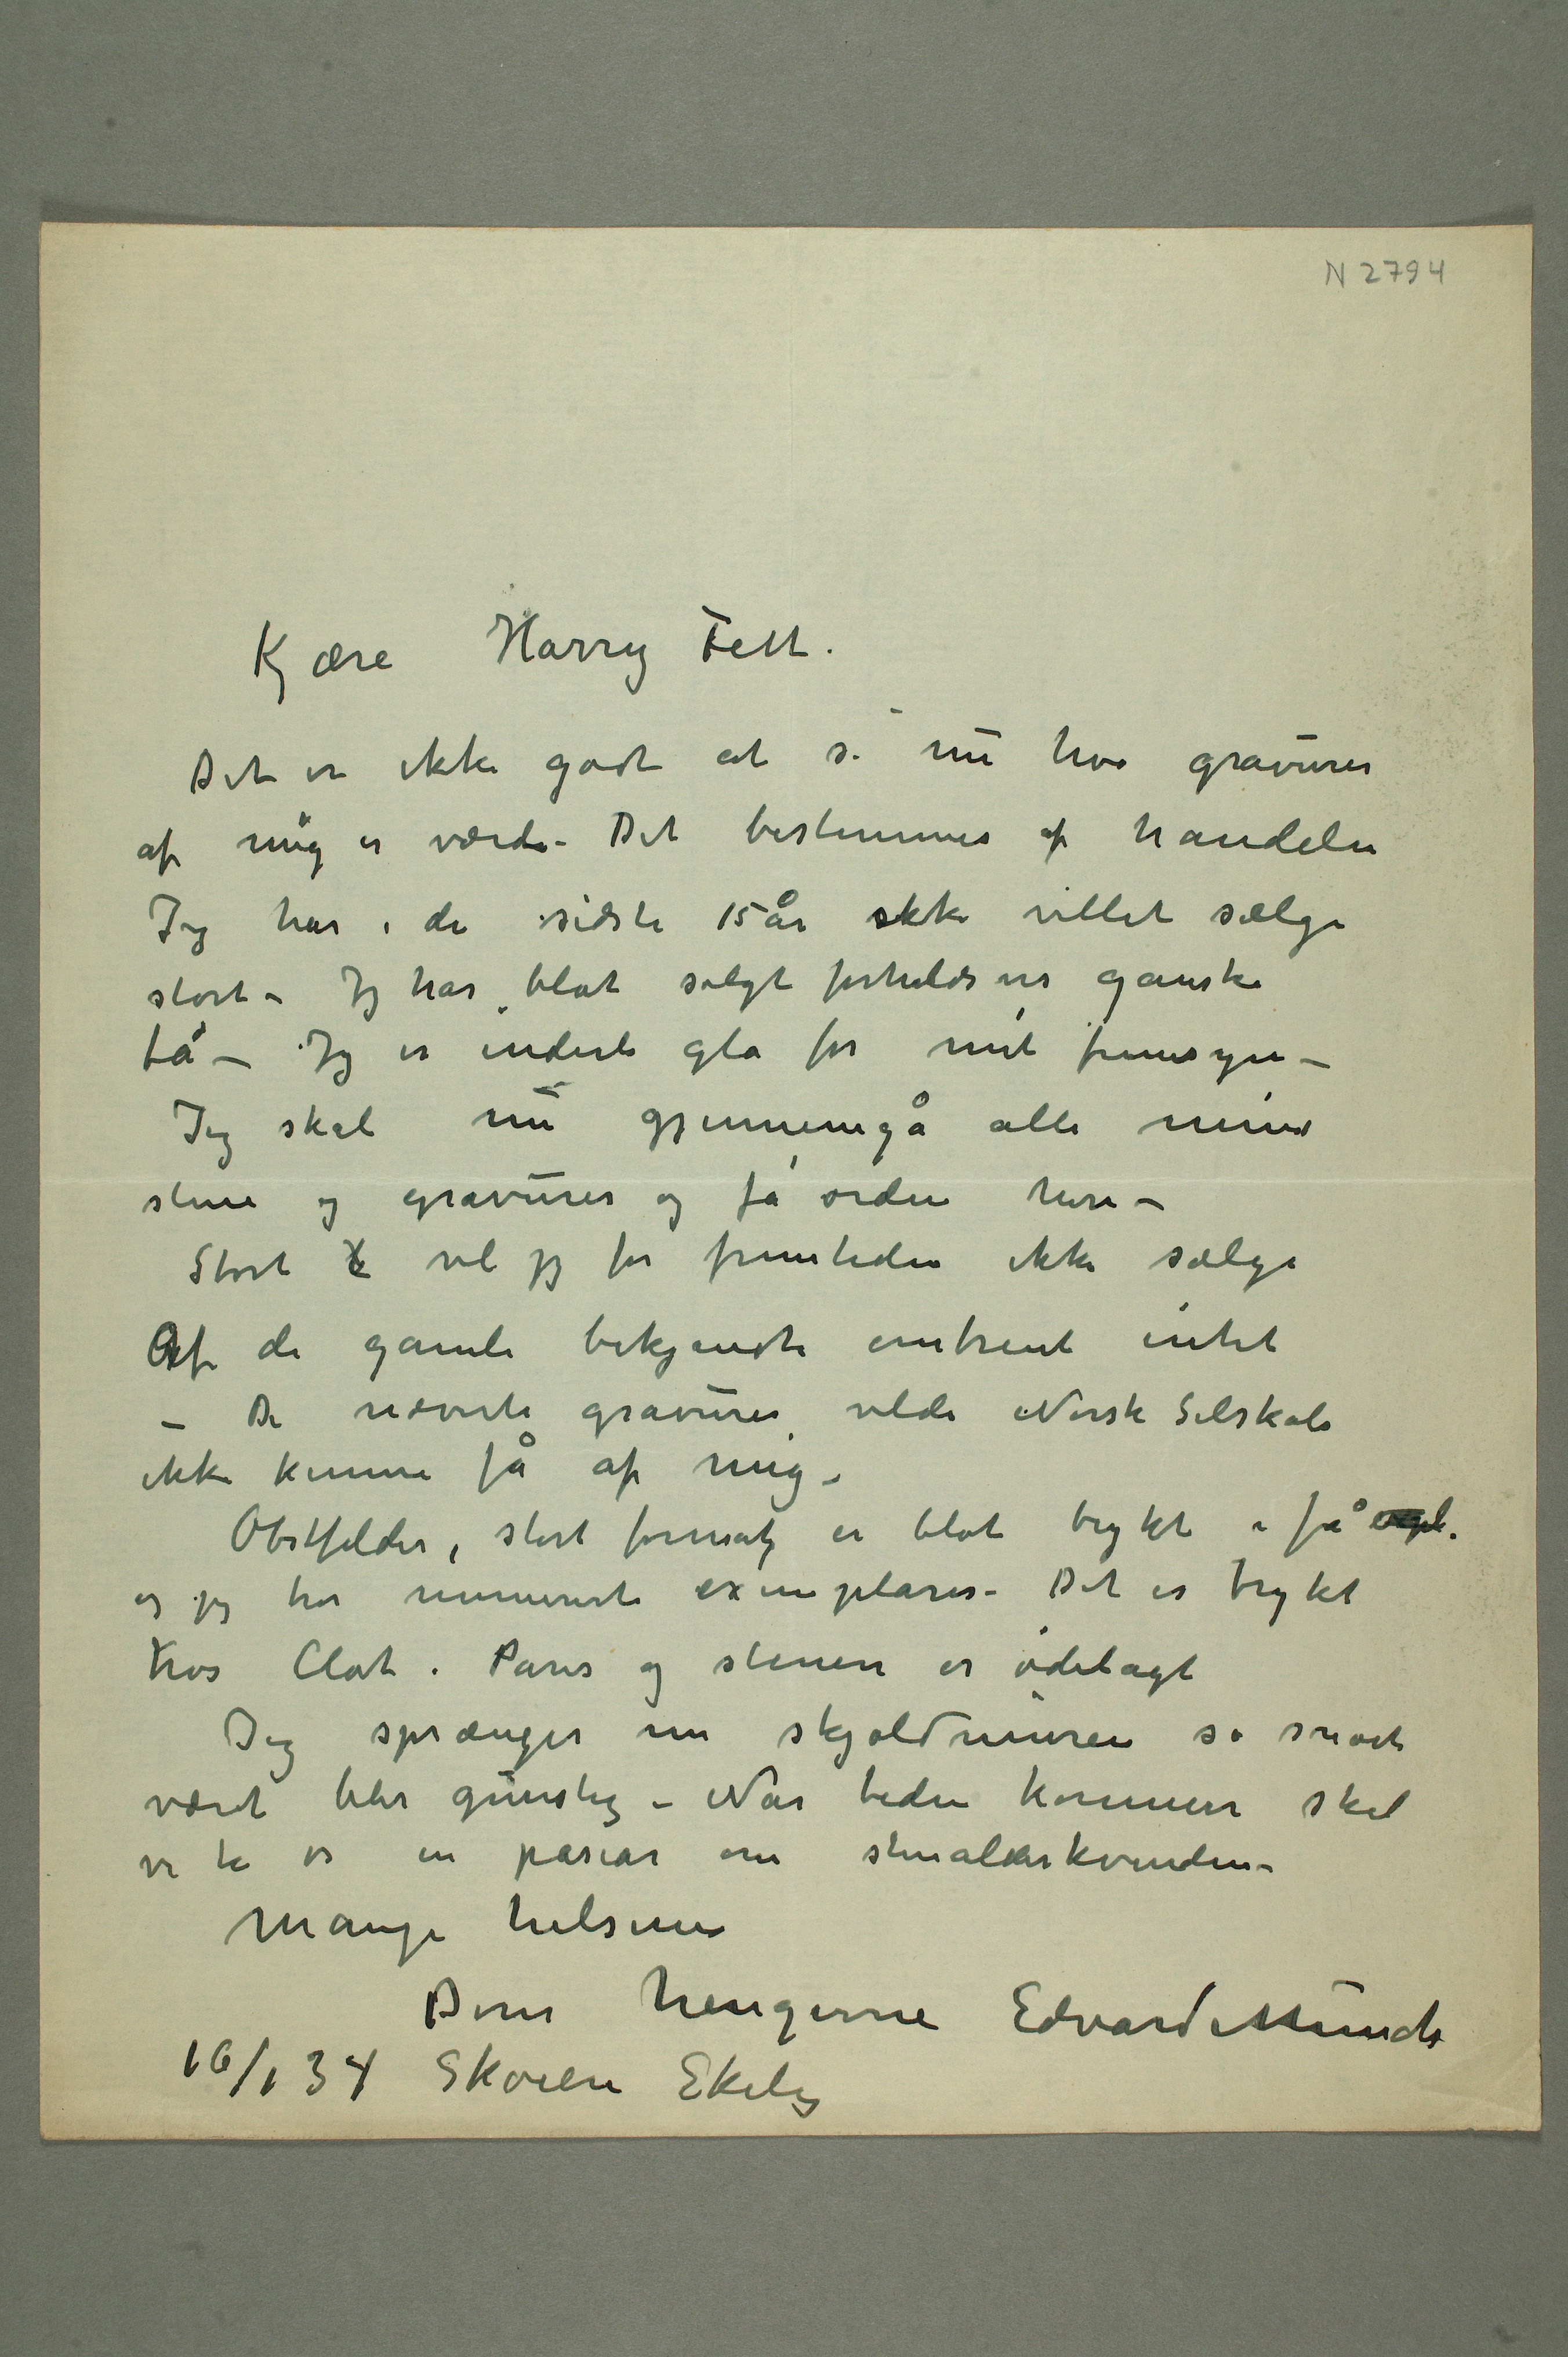 N 2794
Kjære Harry Fett.
Det er ikke godt at si nu hva gravurer
af mig er værd. – Det bestemmes af handelen
Jeg har i de sidste 15 år ikke villet sælge
stort – Jeg har blot solgt forholdsvis ganske
få – Jeg er inderli gla for mit fremsyn –
Jeg skal nu gjennemgå alle mine
stene og gravurer og få orden her –
Stort vil jeg for fremtiden ikke sælge
Af de gamle bekjendte omtrent intet
– De nævnte gravurer vilde Norsk Selskab
ikke kunne få af mig –
Obstfelder, stort format, er blot trykt i få expl.
og jeg har numererte exemplarer – Det er trykt
hos Clot i Paris og stenen er ødelagt
Jeg sprænger nu skjoldmuren så snart
været blir gunstig – Når tiden kommer skal
vi ta os en pasiar om stenalderkvinden –
Mange hilsener
Deres hengivne Edvard Munch
16/1 34 Skøien Ekely